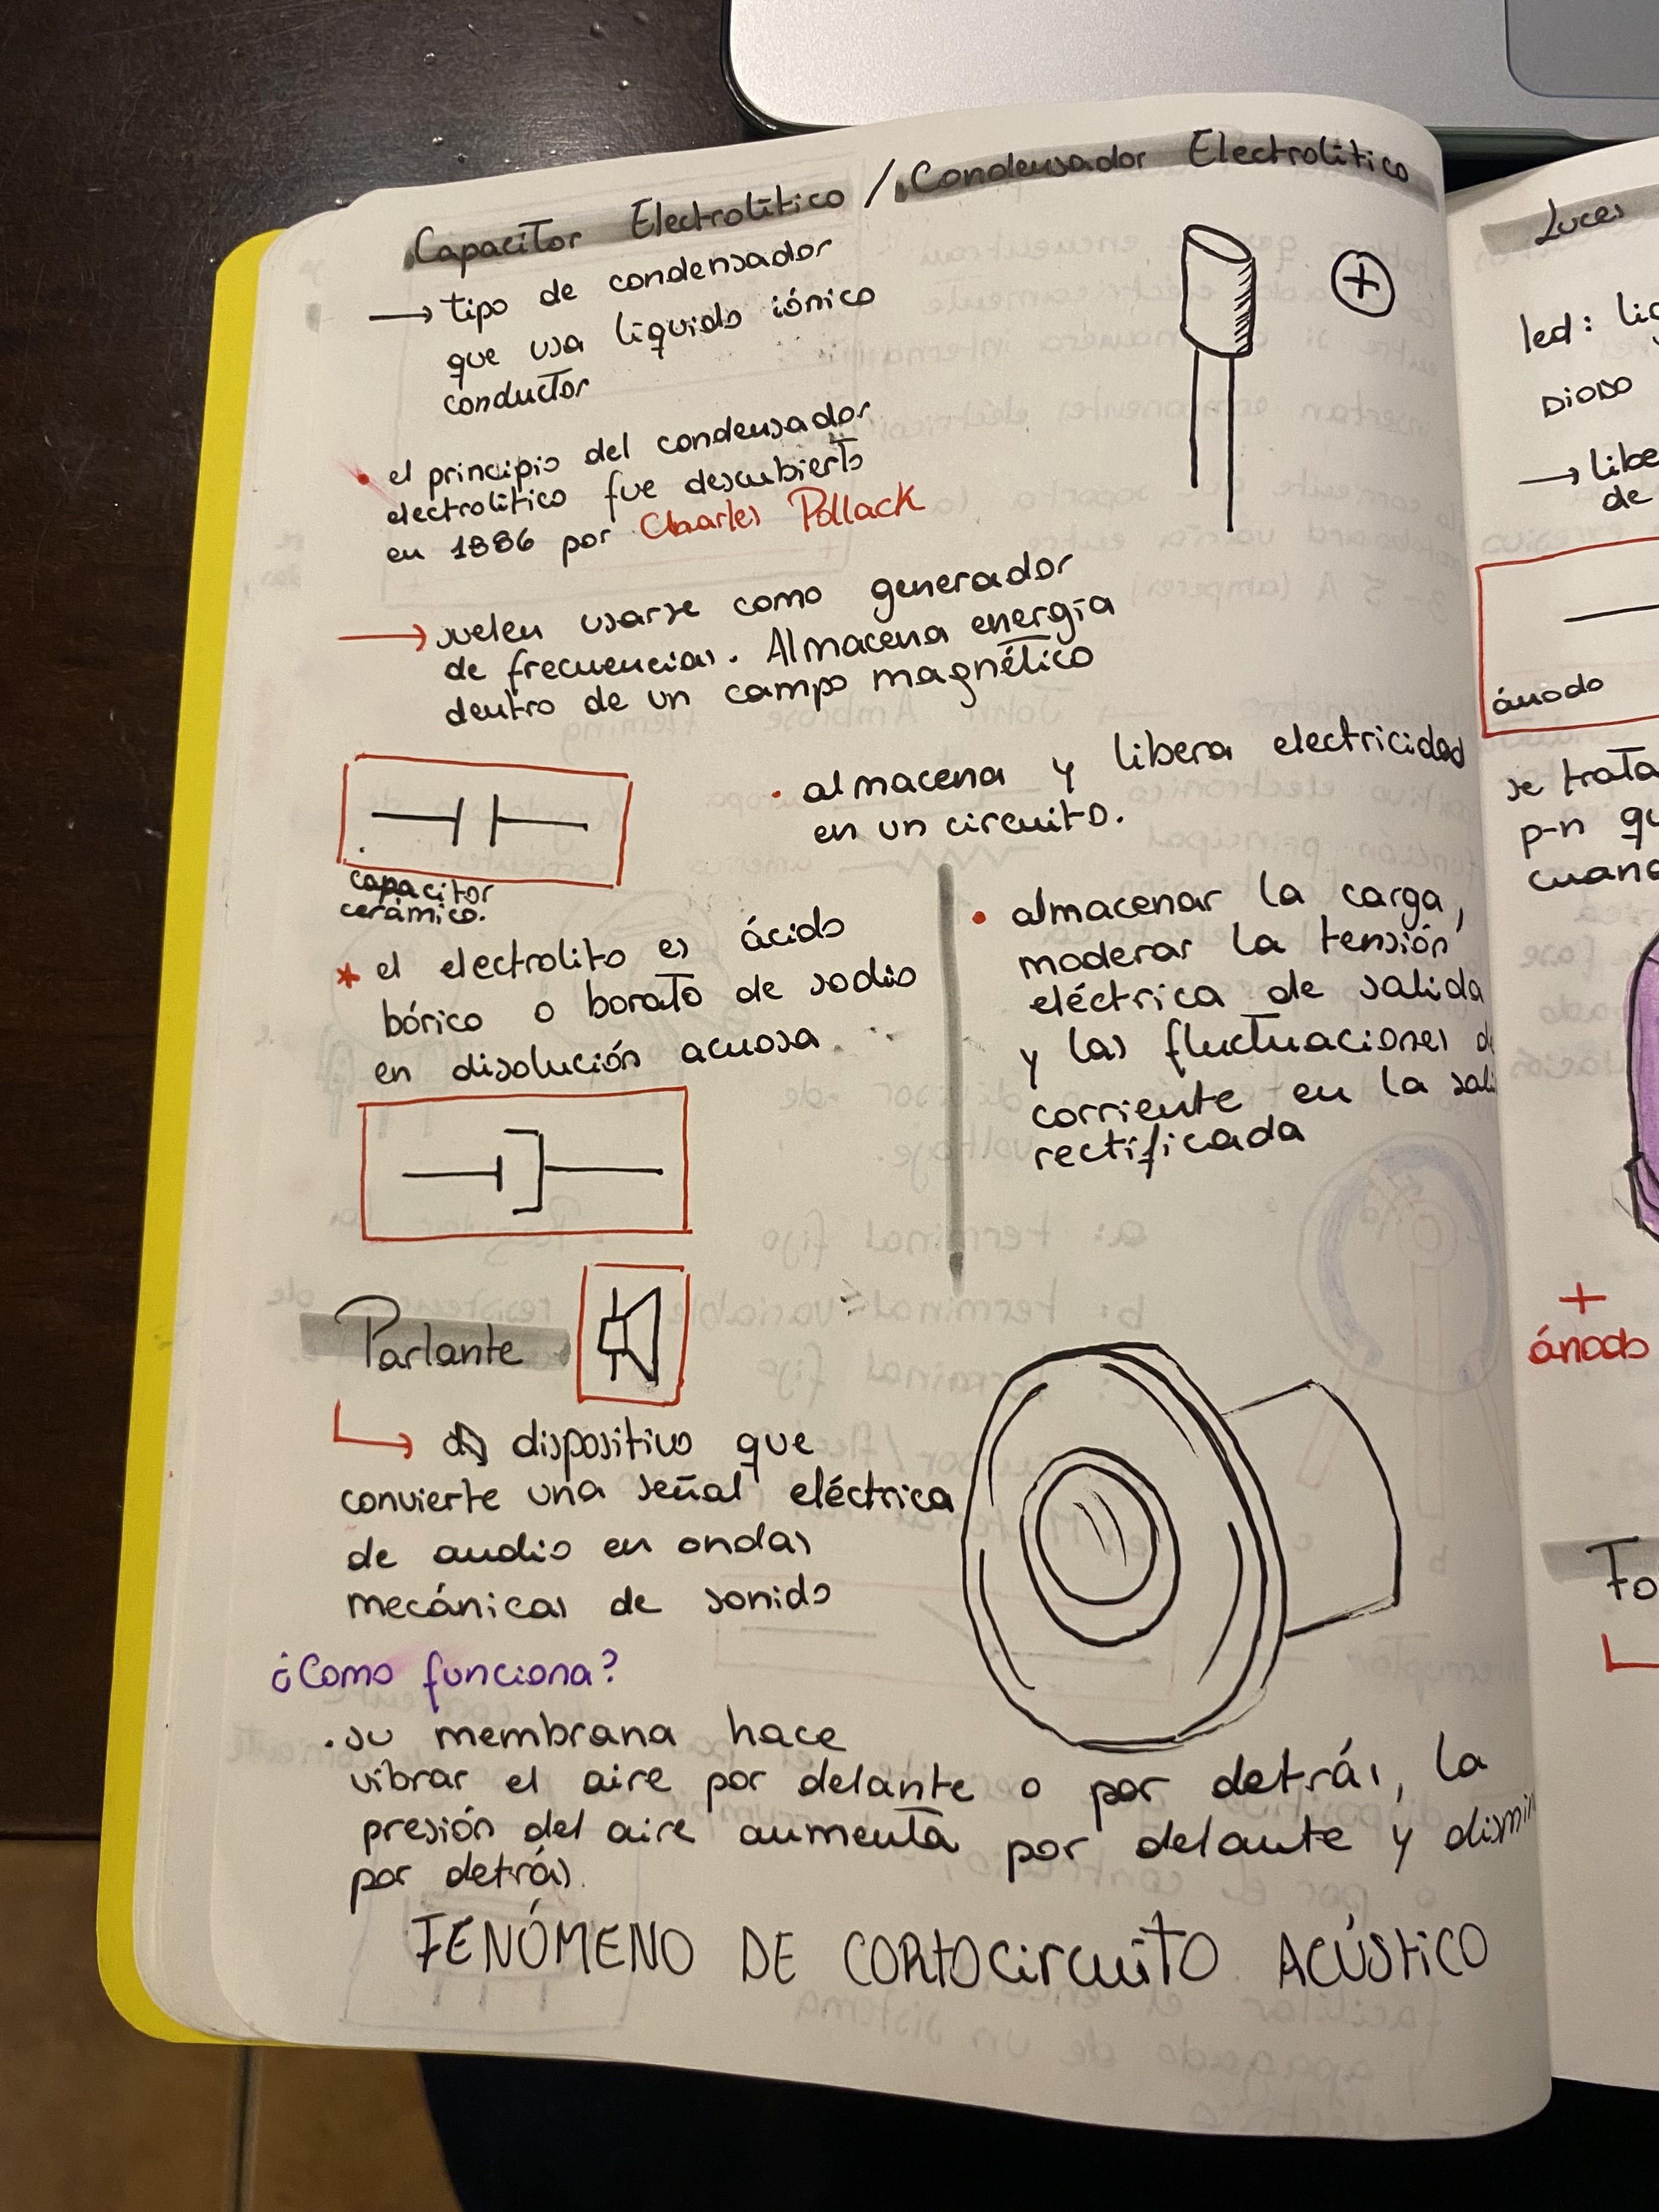 Capacitor Electrolítico / Condensador Electrolítico
→ tipo de condensador
que usa líquido iónico
conductor
• el principio del condensador
electrolítico fue descubierto
en 1886 por Charles Pollack
→ suelen usarse como generador
de frecuencias. Almacena energía
dentro de un campo magnético
capacitor
cerámico.
• almacena y libera electricidad
en un circuito.
* el electrolito es ácido
bórico o borato de sodio
en disolución acuosa
• almacenar la carga,
moderar la tensión
eléctrica de salida
y las fluctuaciones d
corriente en la sali
rectificada
Parlante
↳ dispositivo que
convierte una señal eléctrica
de audio en ondas
mecánicas de sonido
¿Como funciona?
. su membrana hace
vibrar el aire por delante o por detrás, la
presión del aire aumenta por delante y dismin
por detrás.
FENÓMENO DE CORTOCIRCUITO ACÚSTICO
Luces
led:
DIODO
→ libe
de
ánodo
se trata
p-n
cuan
+
ánodo
Fo